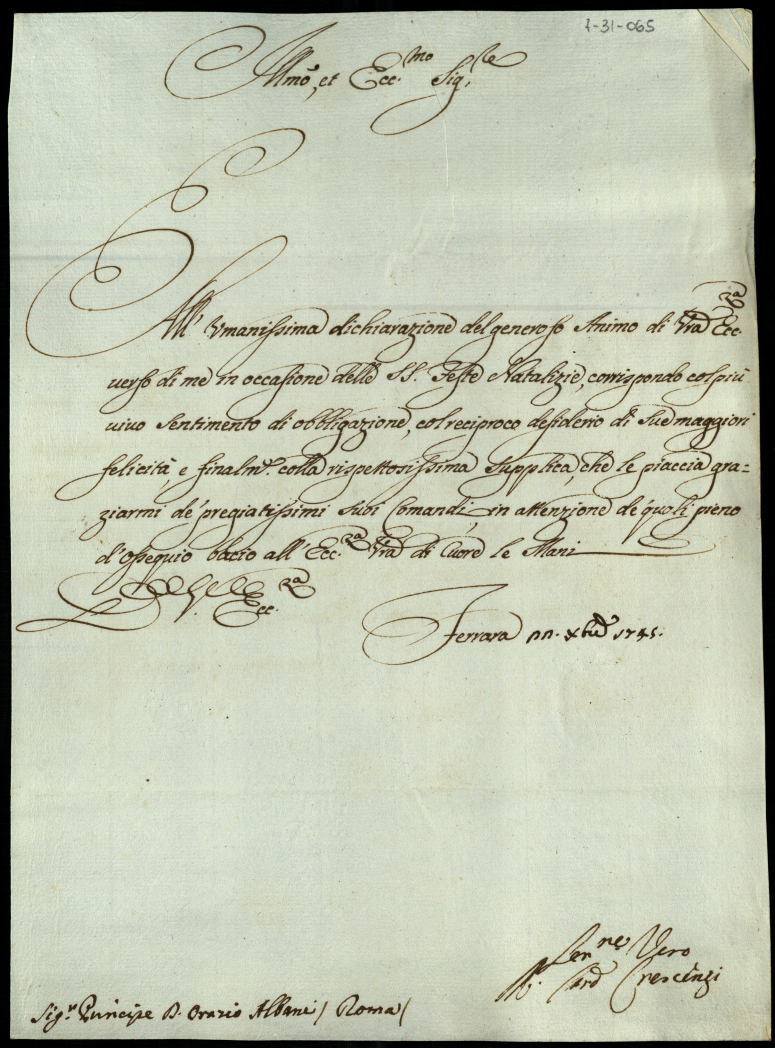 1-31-065
Illmo, et Ecc.mo Sig.re
All' Umanissima dichiarazione del generoso Animo di Vra Ecc.za
verso di me in occasione delle SS. Feste Natalizie, corrispondo col più
vivo sentimento di obbligazione, col reciproco desiderio di sue maggiori
felicità, e finalm.e colla rispettosissima supplica, che le piaccia gra=
ziarmi de' pregiatissimi suoi Comandi, in attenzione de' quali pieno
d'ossequio bacio all' Ecc.za Vra di Cuore le Mani
Ecc.za
Ferrara xbre 1745.
Ser.re Vero
M. Card Crescenzi
Sig.r Principe D. Orazio Albani / Roma /